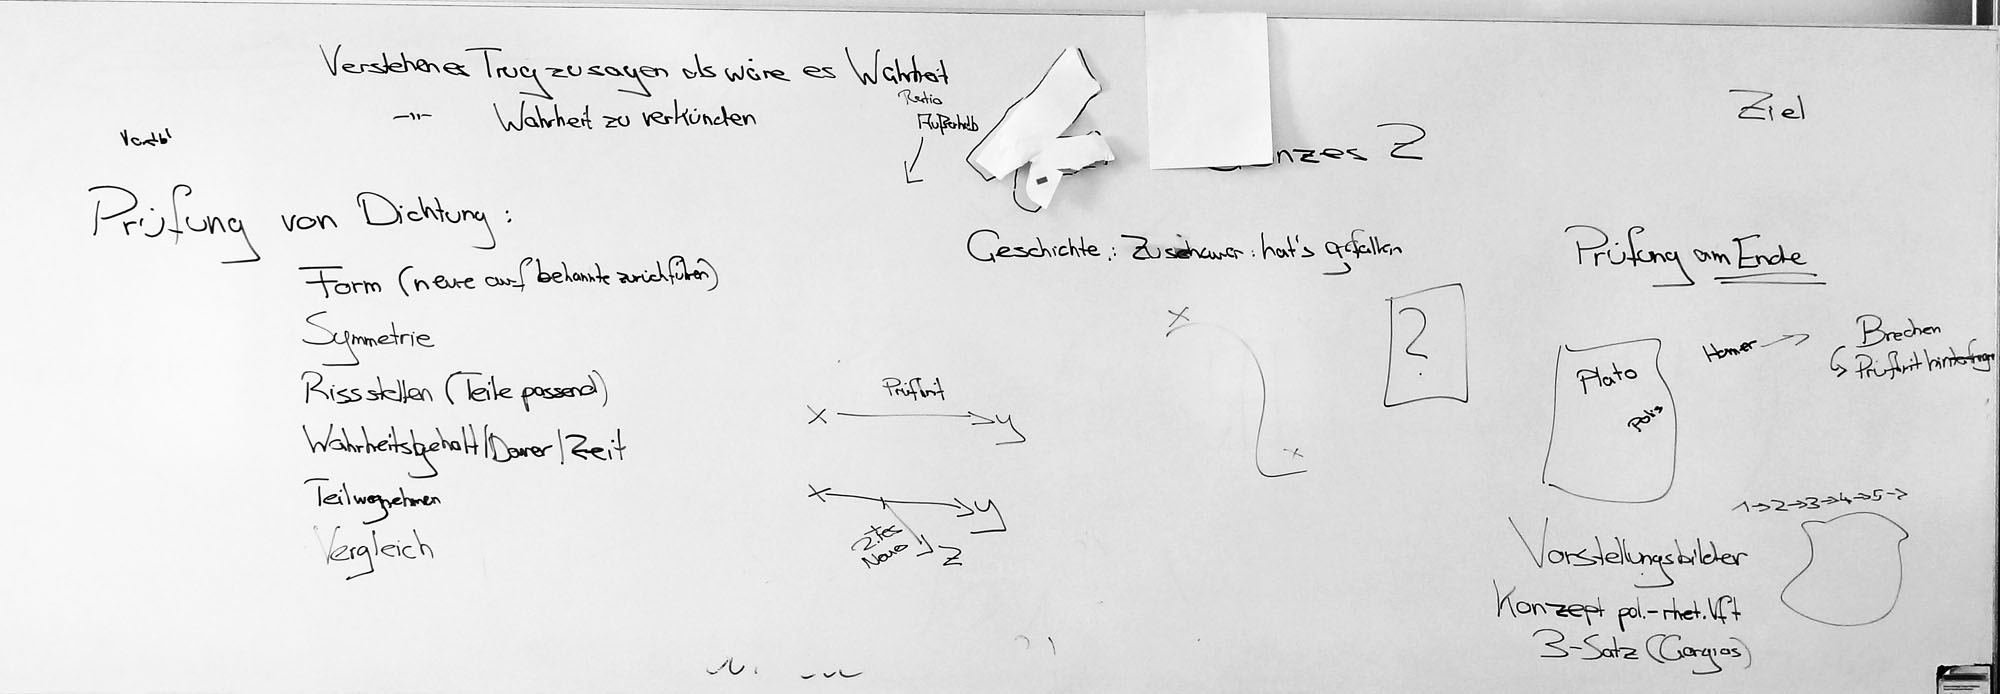 Verstehen es Trug zu sagen als wäre es Wahrheit
-"- Wahrheit zu verkünden
Ratio
Außerhalb
nzes 2
Ziel
Prüfung von Dichtung:
Form (neue auf bekannte zurückführen)
Symmetrie
Rissstellen (Teile passend)
Wahrheitsgehalt/Dauer/Zeit
Teil wegnehmen
Vergleich
Geschichte: Zuschauer: hat's gefallen
X Prüfkrit y
X y
2.tes Novo z
X
X
?
Prüfung am Ende
Plato
Polis
Homer → Brechen
Prüfkrit hinterfrage
1→2→3→4→5→
Vorstellungsbilder
Konzept pol.-rhet. Vft
3-Satz (Gorgias)